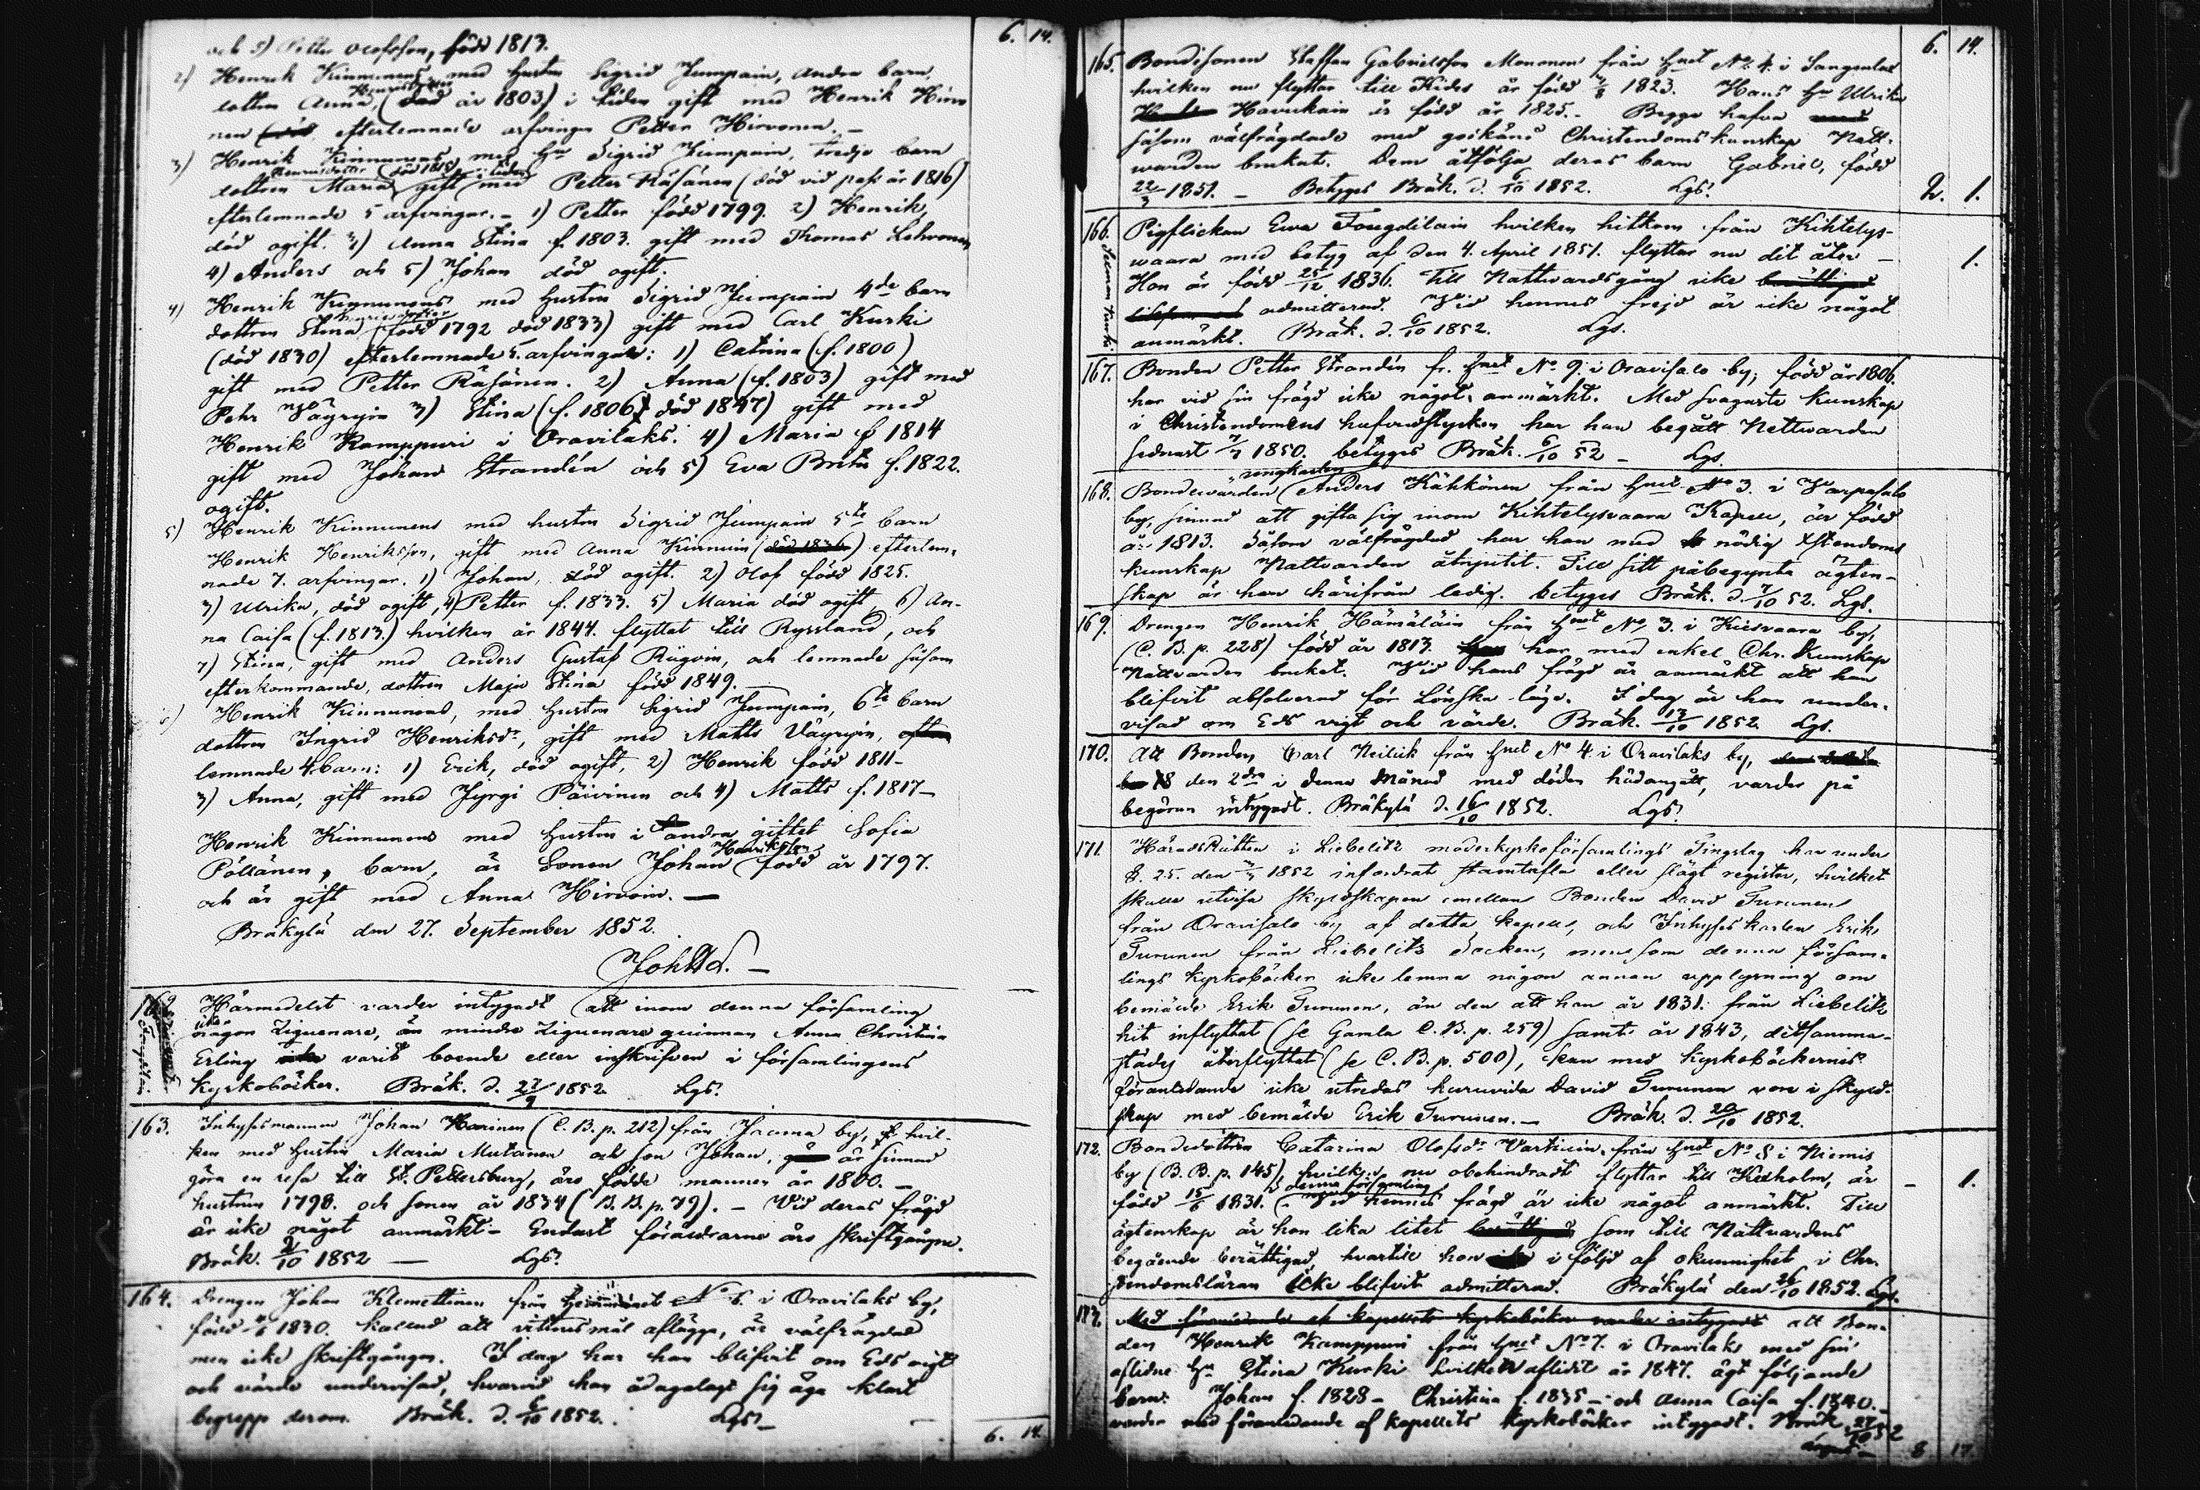 6. 14.
och 5) Petter Olofsson, född 1813.
2) Henrik Kinnunens med hustru Sigrid Jumpain, andra barn,
dottren Anna, Henriksdotter (död år 1803) i tiden gift med Henrik Hirvo
nen efterlemnade arfvingen Petter Hirvonen. —
3) Henrik Kinnunens med Hu Sigrid Jumpain, tredje barn
dottren Maria Henriksdotter (död 1815) gift i tiden med Petter Räsänen (död vid pass år 1816)
efterlemnade 5 arfvingar. - 1) Petter född 1799. 2) Henrik,
död ogift. 3) Anna Stina f. 1803. gift med Thomas Lehvonen
4) Anders och 5) Johan död ogift.
4) Henrik Kinnunens med hustru Sigrid Jumpain 4de barn
dottren Stina Henriksdotter (född 1792 död 1833) gift med Carl Kurki
(död 1830) efterlemnade 5. arfvingar: 1) Catrina (f. 1800)
gift med Petter Räsänen. 2) Anna (f. 1803) gift med
Pehr Väyrynen 3) Stina (f. 1806, död 1847) gift med
Henrik Kamppuri i Oravilaks. 4) Maria f 1814
gift med Johan Strandén och 5) Eva Brita f. 1822.
ogift.
5) Henrik Kinnunens med hustru Sigrid Jumpain 5te barn
Henrik Henriksson, gift med Anna Kinnuin (död 1836) efterlem-
nade 7. arfvingar. 1) Johan, död ogift. 2) Olof född 1825.
3) Ulrika, död ogift, 4) Petter f. 1833. 5) Maria död ogift, 6) An-
na Caisa (f. 1813.) hvilken år 1844. flyttat till Ryssland, och
7) Stina, gift med Anders Gustaf och lemnade såsom
efterkommande, dottren Maja Stina född 1849.
6) Henrik Kinnunens, med hustru Sigrid Jumpain, 6te barn
dottren Ingrid Henriksdr, gift med Matts Väyrynen,
lemnade 4. barn: 1) Erik, död ogift, 2) Henrik född 1811-
3) Anna, gift med Jyrgi Päivinen och 4) Matts f. 1817-
Henrik Kinnunens med hustru i andra giftet Sofia
Pöllänen, barn, är Sonen Johan Henriksson född år 1797.
och är gift med Anna Hirvoin. —
Bråkylä den 27. September 1852.
162. Härmedelst varder intygadt att inom denna församling
icke någon Ziguenare, än mindre Ziguenare quinnan Anna Christina
Erling varit boende eller inskrifven i församlingens
kyrkoböcker. Bråk. d. 27/9 1852 Lgs.
163. Inhysesmannen Johan Harinen (C. B. p. 212) från Jaama by, hvil-
ken med hustru Maria Mutanen och son Johan, är sinnad
göra en resa till St. Pettersburg, äro födde mannen år 1800. —
hustrun 1798. och sonen år 1834 (B. B. p. 79). - Vid deras frägd
är icke något anmärkt - Endast föräldrarne äro skriftgångne.
Bråk. 2/10 1852 — Lgs.
164. Drengen Johan Klemettinen från Hemmanet No 6. i Oravilaks by,
född 1830. kallad att vittnesmål aflägga, är välfrägdad
men icke skriftgången. I dag har han blifvit om Eds vigt
och värde undervisad, hvarvid han ådagalagt sig äga klart
begrepp derom. Bråk. d. 6/10 1852. Lgs.
6. 14.
6. 14.
165. Bondesonen Staffan Gabrielsson Mononen från Hmt No 4. i Sangenlaks
hvilken nu flyttar till Kides är född 1823. Hans Hu Ulrika
Havukain är född år 1825. - Begge hafva
såsom välfrägdade med godkänd Christendomskunskap Natt-
warden brukat. Dem åtfölja deras barn Gabriel, född
22/3 1851. — Betyges Bråk. d. 6/10 1852. Lgs. 2. 1.
166. Pigflickan Ewa Fougdilain hvilken hitkom från Kihtelys-
waara med betyg af den 4. April 1851. flyttar nu dit åter — 1.
Hon är född 25/12 1836. Till Nattwardsgång icke
admitterad. Vid hennes frejd är icke något
anmärkt. Bråk. d. 6/10 1852. Lgs.
167. Bonden Petter Strandén fr. Hmt No 9. i Oravisalo by, född år 1806.
har vid sin frägd icke något anmärkt. Med svagaste kunskap
i Christendomens hufvudstycken har han begått Nattwarden
sednast 1850. betyges Bråk. 6/10 52 - Lgs.
168. Bondewärden ungkarlen Anders Kähkönen från Hmt No 3. i Varpasalo
by, sinnad att gifta sig inom Kihtelysvaara Kapell, är född
år 1813. Såsom välfrägdad har han med nödig Xstendoms
kunskap Nattwarden åtnjutit. Till sitt påbegynta ägten-
skap är han härifrån ledig. betyges Bråk. d. 7/10 52. Lgs.
169. Drengen Henrik Hämäläin från Hmt No 3. i Kiesvaara by,
(C. B. p. 228) född år 1813. har med enkel Chr. kunskap
Nattvarden brukat. Vid hans frägd är anmärkt att han
blifvit absolverad för Lönska-läge. I dag är han under-
visad om Eds vigt och värde. Bråk. 13/10 1852. Lgs.
170. Att Bonden Carl Neilick från Hmt No 4. i Oravilaks by,
den 2dra i denna Månad med döden hädangått, varder på
begäran intygadt. Bråkylä d. 16/10 1852. Lgs.
171. Häradsrätten i Libelitz moderkyrkoförsamlings Tingslag har under
§. 25. den 1852 infordrat stamtafla eller slägt register, hvilket
skulle utvisa skyldskapen emellan Bonden David Turunen
från Oravisalo by af detta kapell, och Inhyses karlen Erik
Turunen från Liebelitz Socken, men som denna försam-
lings kyrkoböcker icke lemna någon annan upplysning om
bemälde Erik Turunen, än den att han år 1831. från Liebelitz
hit inflyttat (se Gamla C. B. p. 259) samt år 1843, ditsamma-
städes återflyttat (se C. B. p. 500), kan med kyrkoböckernes
föranledande icke utredas huruvida David Turunen vore i skyld-
skap med bemälde Erik Turunen. — Bråk. d. 20/10 1852.
172. Bondedottren Catarina Olofsdr Vartiain från Hmt No 8 i Niemis
by (B. B. p. 145), hvilken nu obehindradt från denna församling flyttar till Kexholm, är - 1.
född 15/6 1831. Vid hennes frägd är icke något anmärkt. Till
ägtenskap är hon lika litet som till Nattvardens
begående berättigad, hvartill hon i följd af okunnighet i Chr.
stendomsläran icke blifvit admitterad. Bråkylä den 26/10 1852. Lgs.
173. Med föranledande af kapellets kyrkoböcker varder intygadt att Bon-
den Henrik Kamppuri från Hmt No 7. i Oravilaks med sin
aflidne Hu Stina Kurki hvilken aflidit år 1847. ägt följande
barn: Johan f. 1828 - Christina f. 1835 - och Anna Caisa f. 1840. -
warder med föranledande af kapellets kyrkoböcker intygadt. Bråk. 27/10 52
8 17.